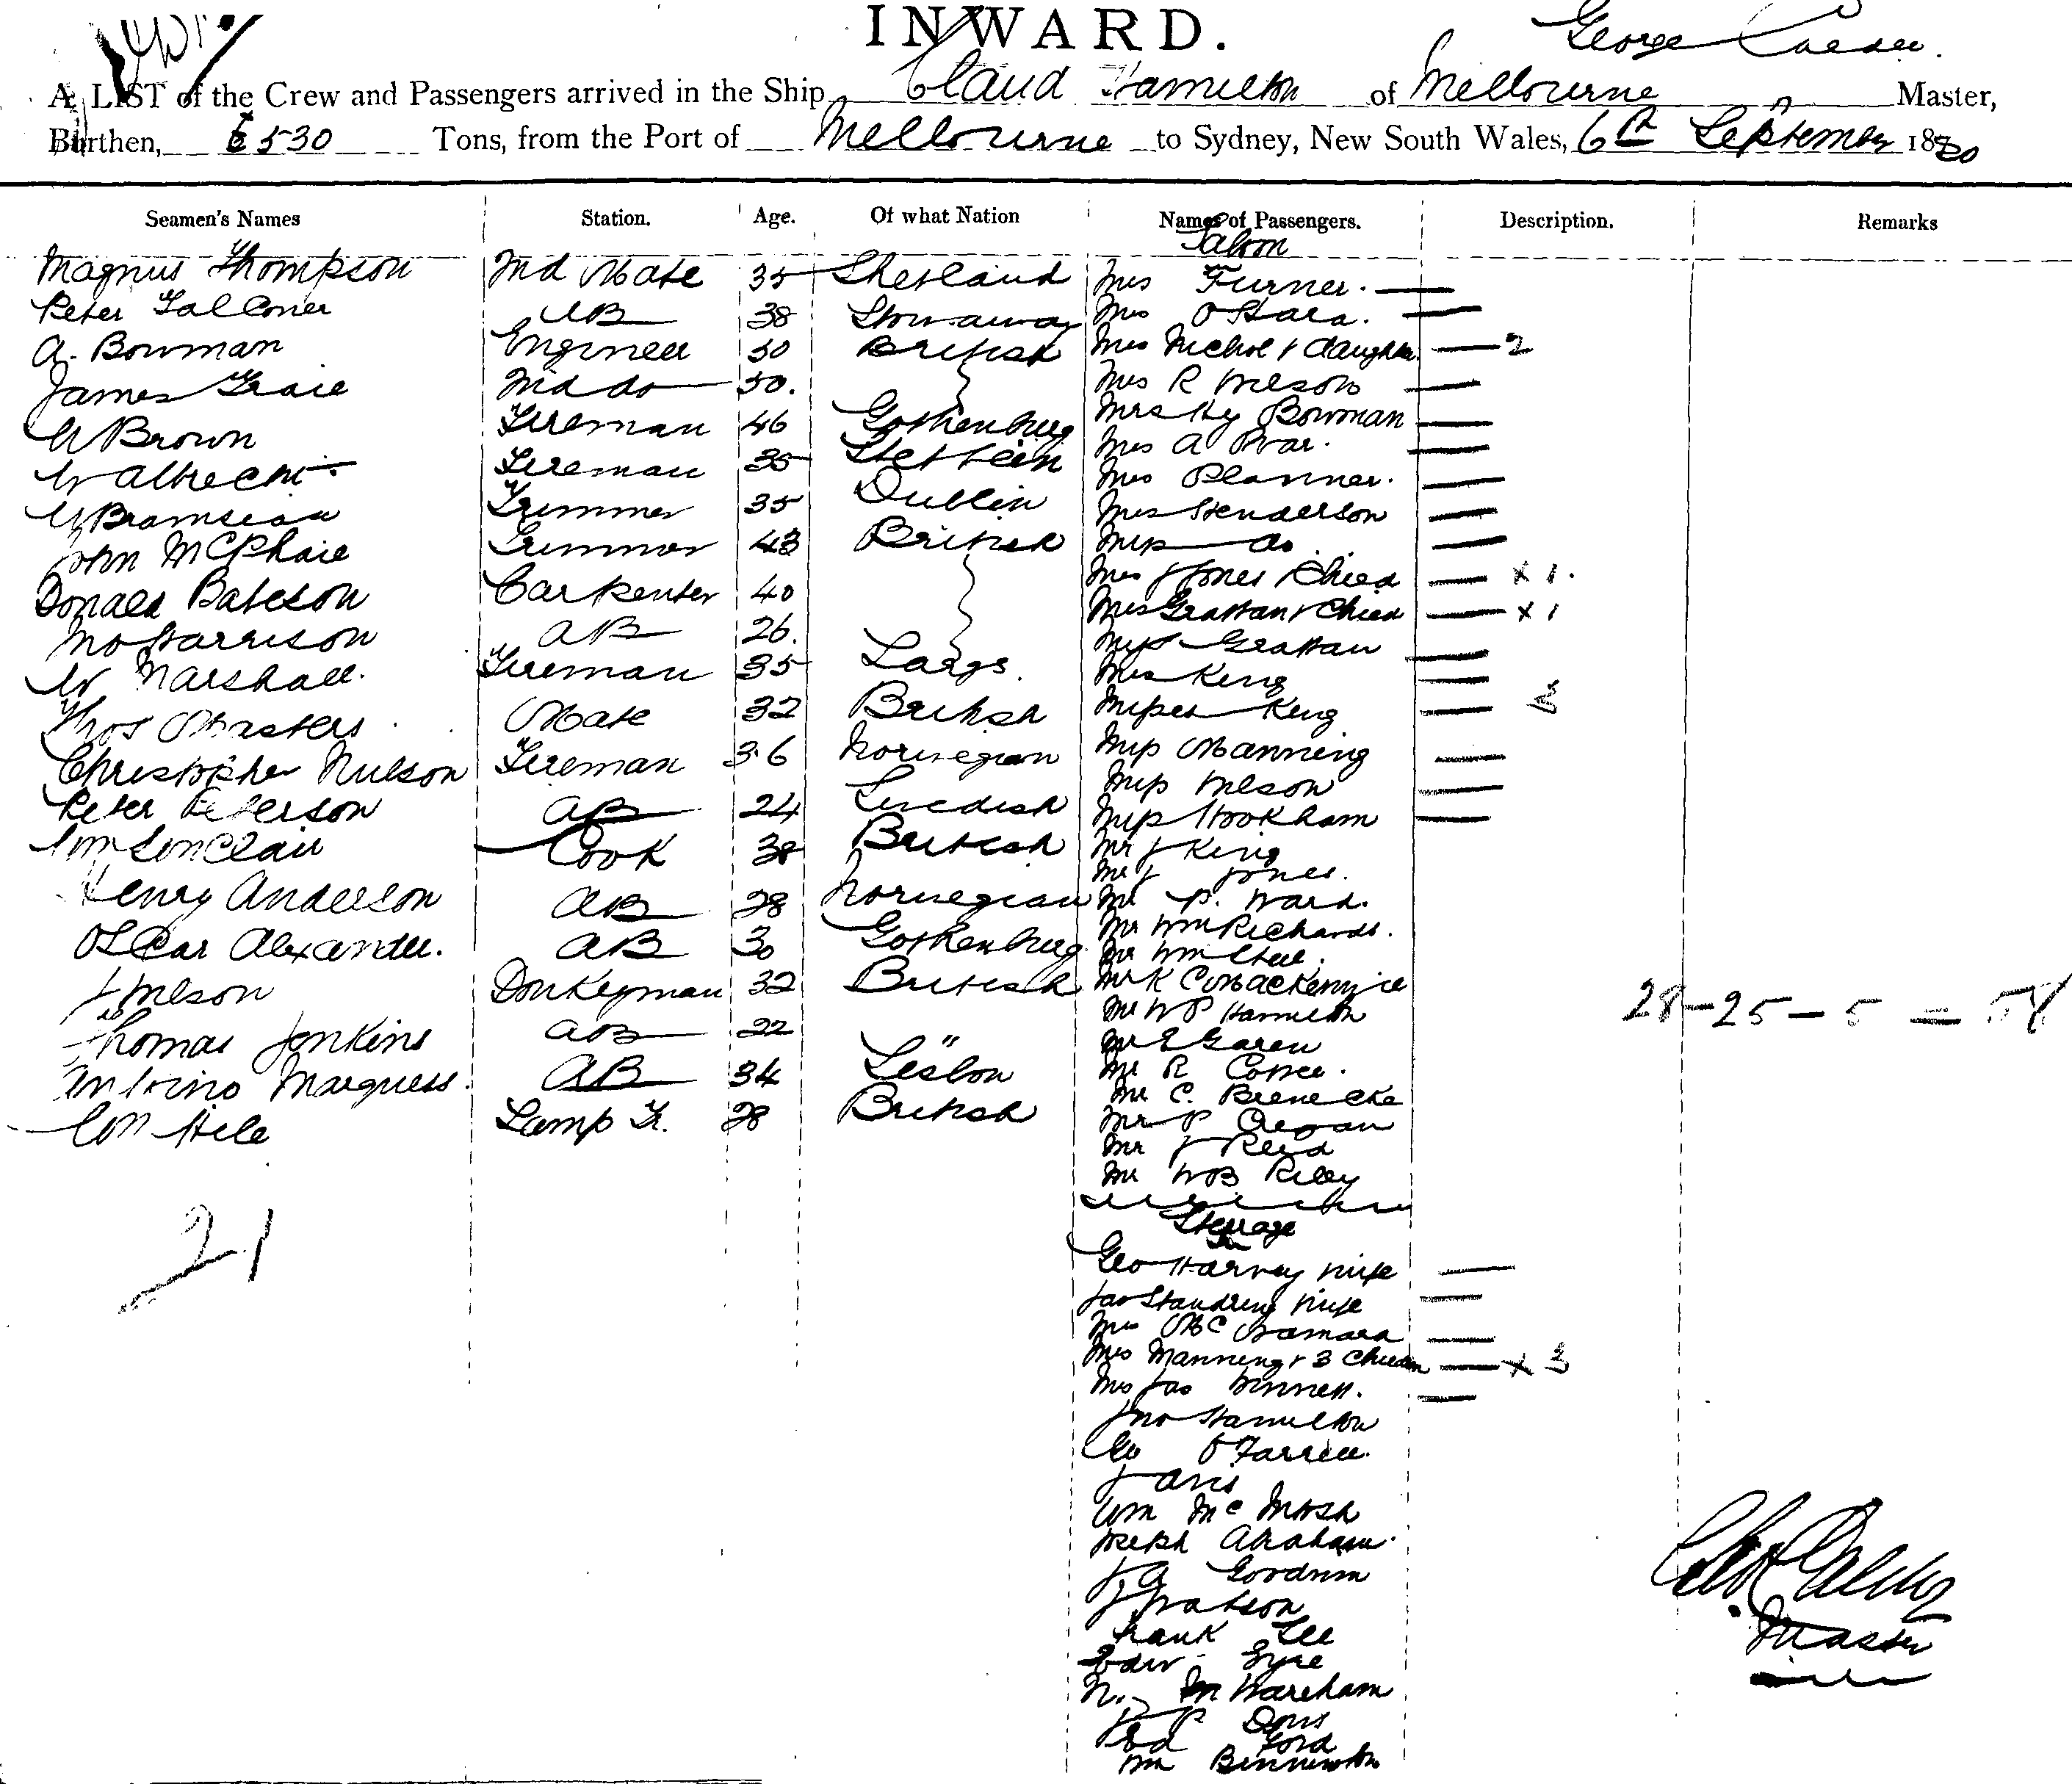 INWARD.
George Calder.
A LIST of the Crew and Passengers arrived in the Ship Claud Hamilton of Melbourne Master,
Burthen, 530 Tons, from the Port of Melbourne to Sydney, New South Wales, 6th September 1880
Seamen's Names Station. Age. Of what Nation Names of Passengers. Description. Remarks
Saloon
Magnus Thompson 2nd Mate 35 Shetland Mrs Turner.
Peter Falconer AB 38 Stornaway Mrs O'Hara.
A. Bowman Engineer 50 British Mrs Nichol & daughter 2
James Grace 2nd do 50. Mrs R Wilson
W Brown Fireman 46 Gothenburg Mrs Hy Bowman
W Albrecht Fireman 35 Stettein Mrs A
W Trimmer 35 Dublin Mrs Planner.
John McPhaie Trimmer 43 British Mrs Henderson
Miss do
Donald Bateson Carpenter 40 Mrs J Jones & Child x 1.
Jno Harrison AB 26. Mrs Grattan & Child x 1
W Marshall. Fireman 35 Largs. Miss Grattan
Mrs King
Thos Masters Mate 32 British Misses King 3
Christopher Nielson Fireman 36 Norwegian Miss Manning
Peter Peterson AB 24 Swedish Miss Wilson
Wm Sinclair Cook 38 British Miss Hookham
Mr J King
Mr J Jones.
Henry Anderson AB 28 Norwegian Mr P. Ward.
Oscar Alexander. AB 30 Gothenburg Mr Wm Richards.
Mr Wm Steel.
J Wilson Donkeyman 32 British Mr K C Mackenzie
Mr W P Hamilton
28 - 25 - 5 = 58
Thomas Jenkins AB 22 " Mr E Garen
Antonio Marquess. AB 34 Lisbon Mr R
Mr C. Brenecke
Wm Hile Lamp Tr. 28 British Mr P Cregan
Mr J Reid
Mr W B Riley
21
Steerage
Geo Harvey & wife
Jas Standring & wife
Mrs McNamara
Mrs Manning & 3 Children x 3
Mrs Jas Winnett.
Jno Hamilton
Geo O'Farrell.
J Davis
Wm Mc
Joseph Abraham.
J A Goodwin
J Watson
Frank Lee
Edw. Eyre
N. Wareham
P
Ford
Wm Bennington
Geo Calder
Master